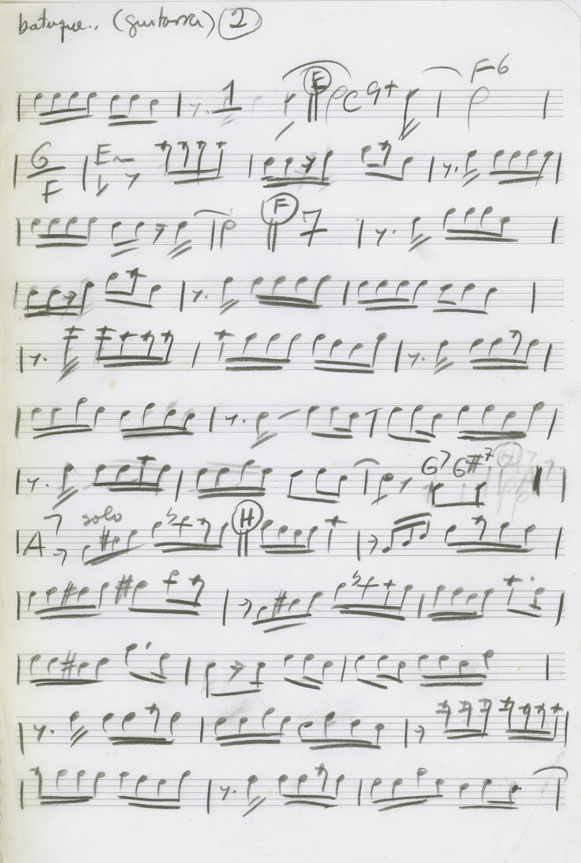 batuque.. (guitarra) 2
1 E C9+ F6
G/F E
F 7
G7 G#7
A7 solo H